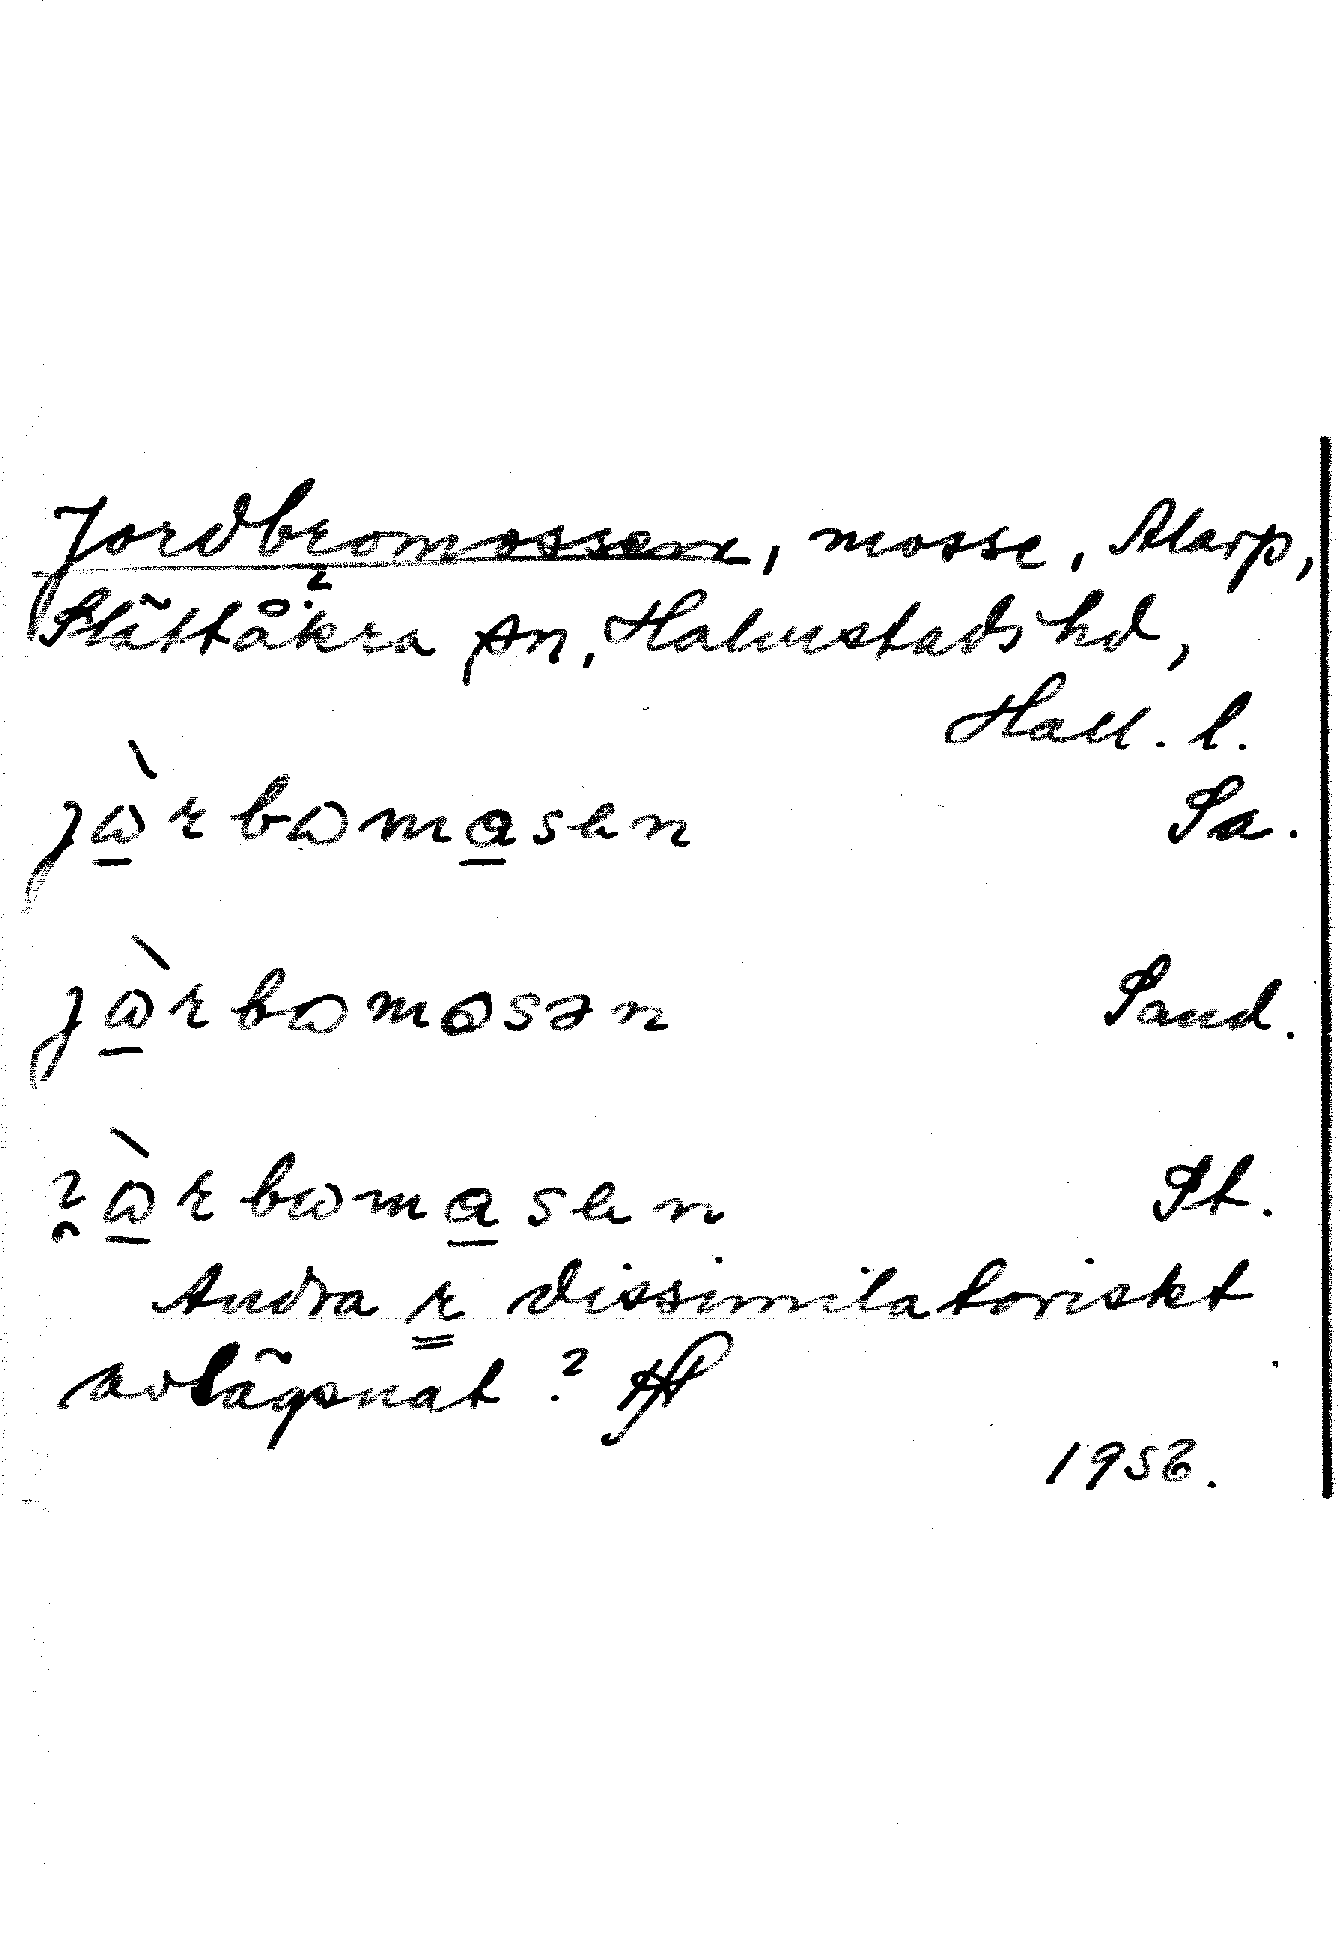 Jordbromossen, mosse, Alarp,
Slättåkra sn, Halmstads hd,
Hall. l.
jὼrbωmasen Sa.
jὼrbωmosən Sand.
ὼrbωmasen St.
Andra r dissimilatoriskt
avlägsnat ?
1952.